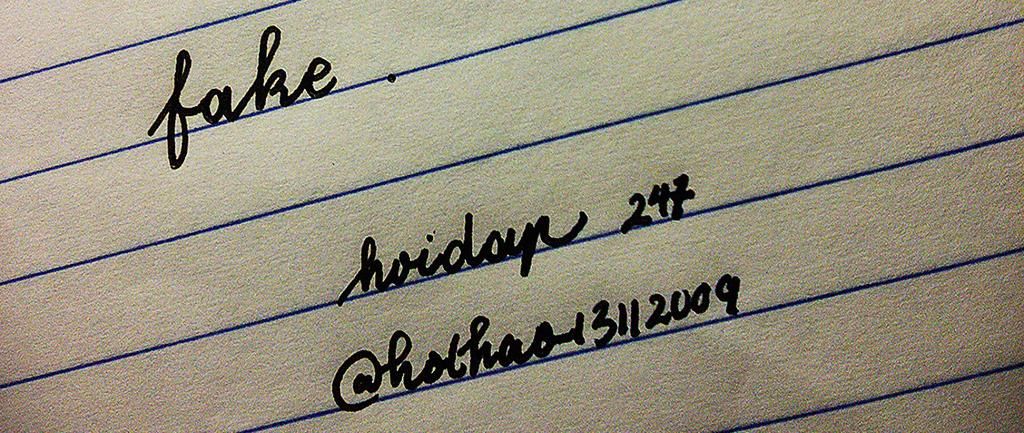 fake .
hoidap 247
@hothao13112009